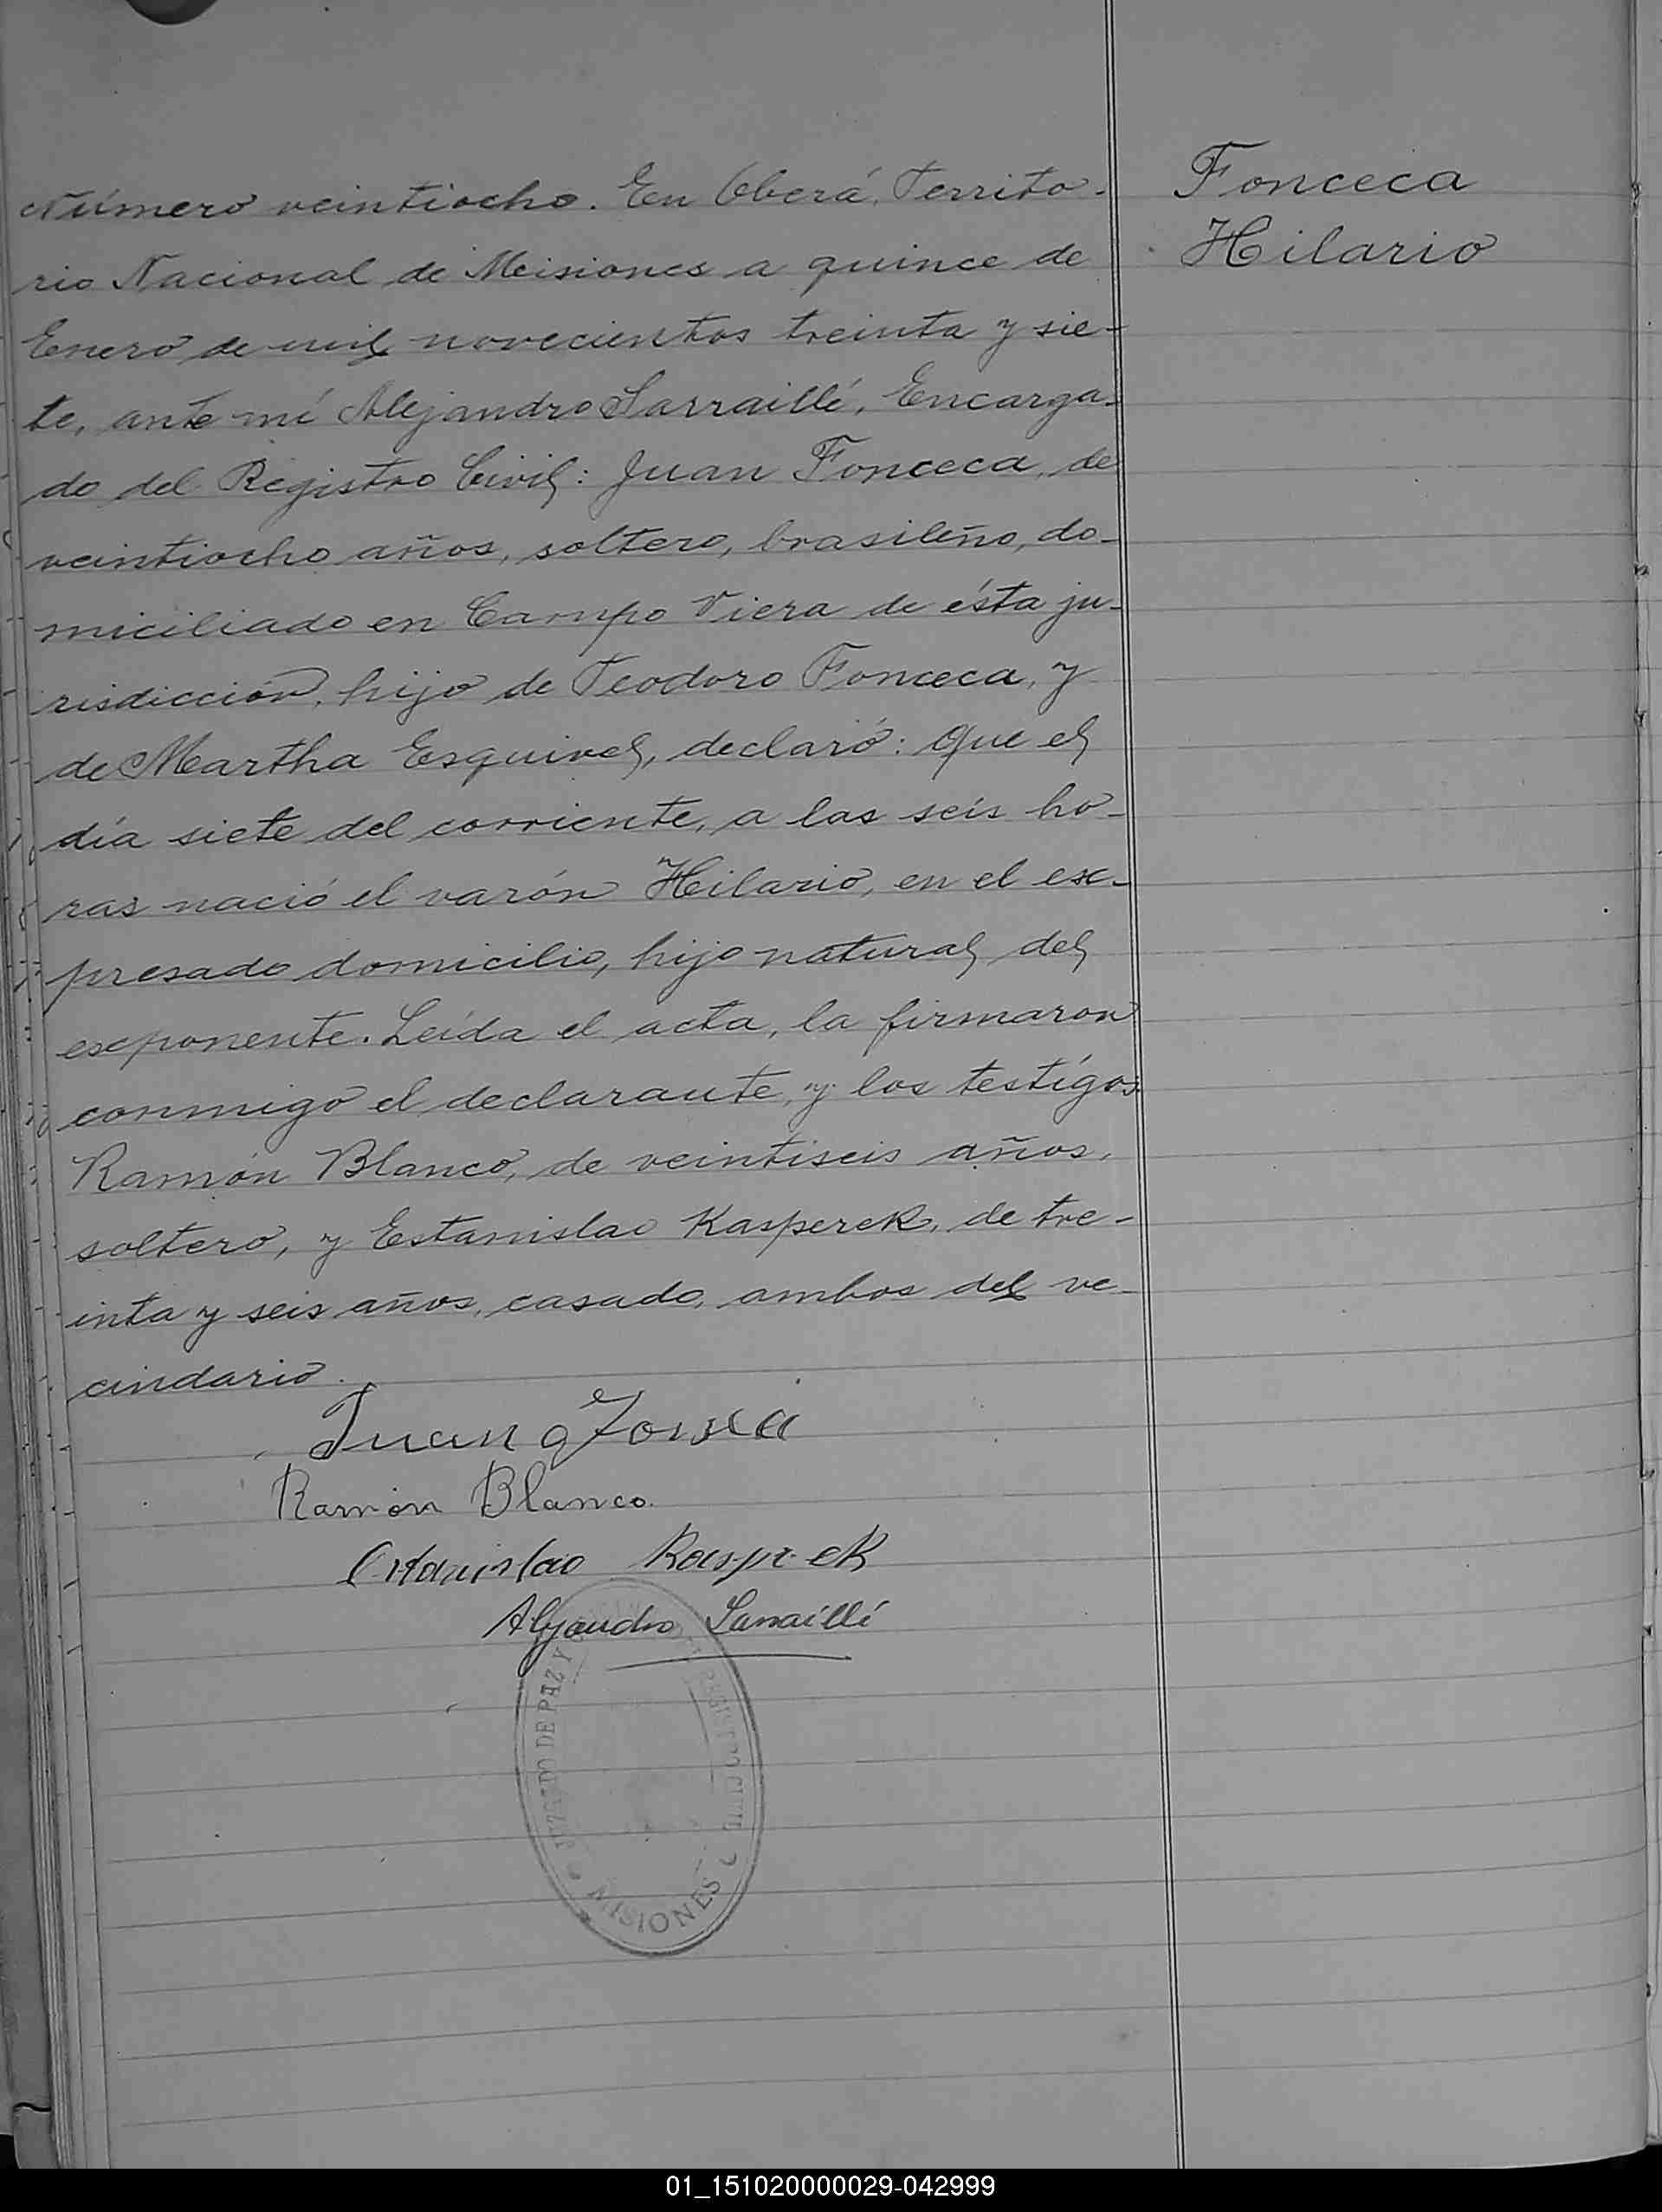 Número veintiocho. En Oberá, Territo-
rio Nacional de Misiones a quince de
Enero de mil novecientos treinta y sie-
te, ante mí Alejandro Sarraillé, Encarga-
do del Registro Civil: Juan Fonceca, de
veintiocho años, soltero, brasileño, do-
miciliado en Campo Viera de ésta ju-
risdicción, hijo de Teodoro Fonceca, y
de Martha Esquivel, declaró: Que el
día siete del corriente, a las seis ho-
ras nació el varón Hilario, en el ex-
presado domicilio, hijo natural del
exponente. Leída el acta, la firmaron
conmigo el declarante, y los testígos
Ramón Blanco, de veintiseis años,
soltero, y Estanislao Kasperek, de tre-
inta y seis años, casado, ambos del ve-
cindario.
Fonceca
Hilario
Juan
Ramón Blanco.
Estanislao
Alejandro Sarraillé
JUZGADO DE PAZ Y REGISTRO CIVIL
MISIONES
01_151020000029-042999